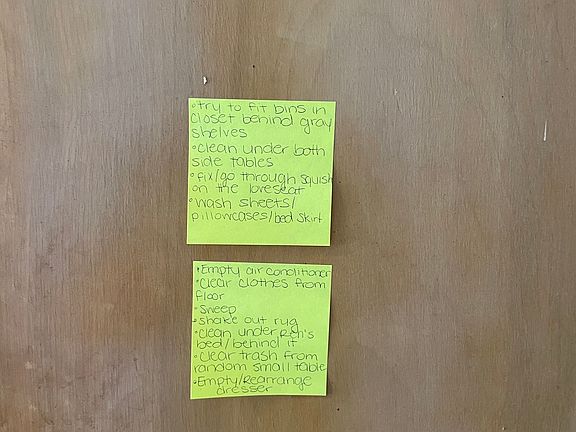 •try to fit bins in
closet behind gray
shelves
•clean under both
side tables
•fix/go through squish
on the loveseat
•wash sheets/
pillowcases/bed skirt
•Empty air conditioner
•Clear clothes from
floor
•Sweep
•shake out rug
•clean under
bed/behind it
•Clear trash from
random small table
•Empty/Rearrange
dresser